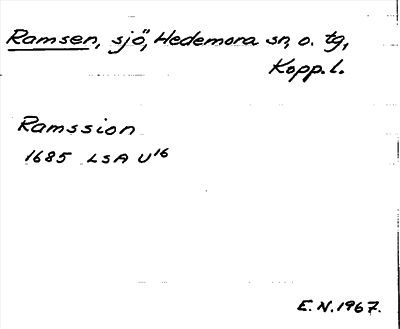 Ramsen, sjö, Hedemora sn, o. tg,
Kopp. l.
Ramssion
1685 LSA U16
E. N. 1967.